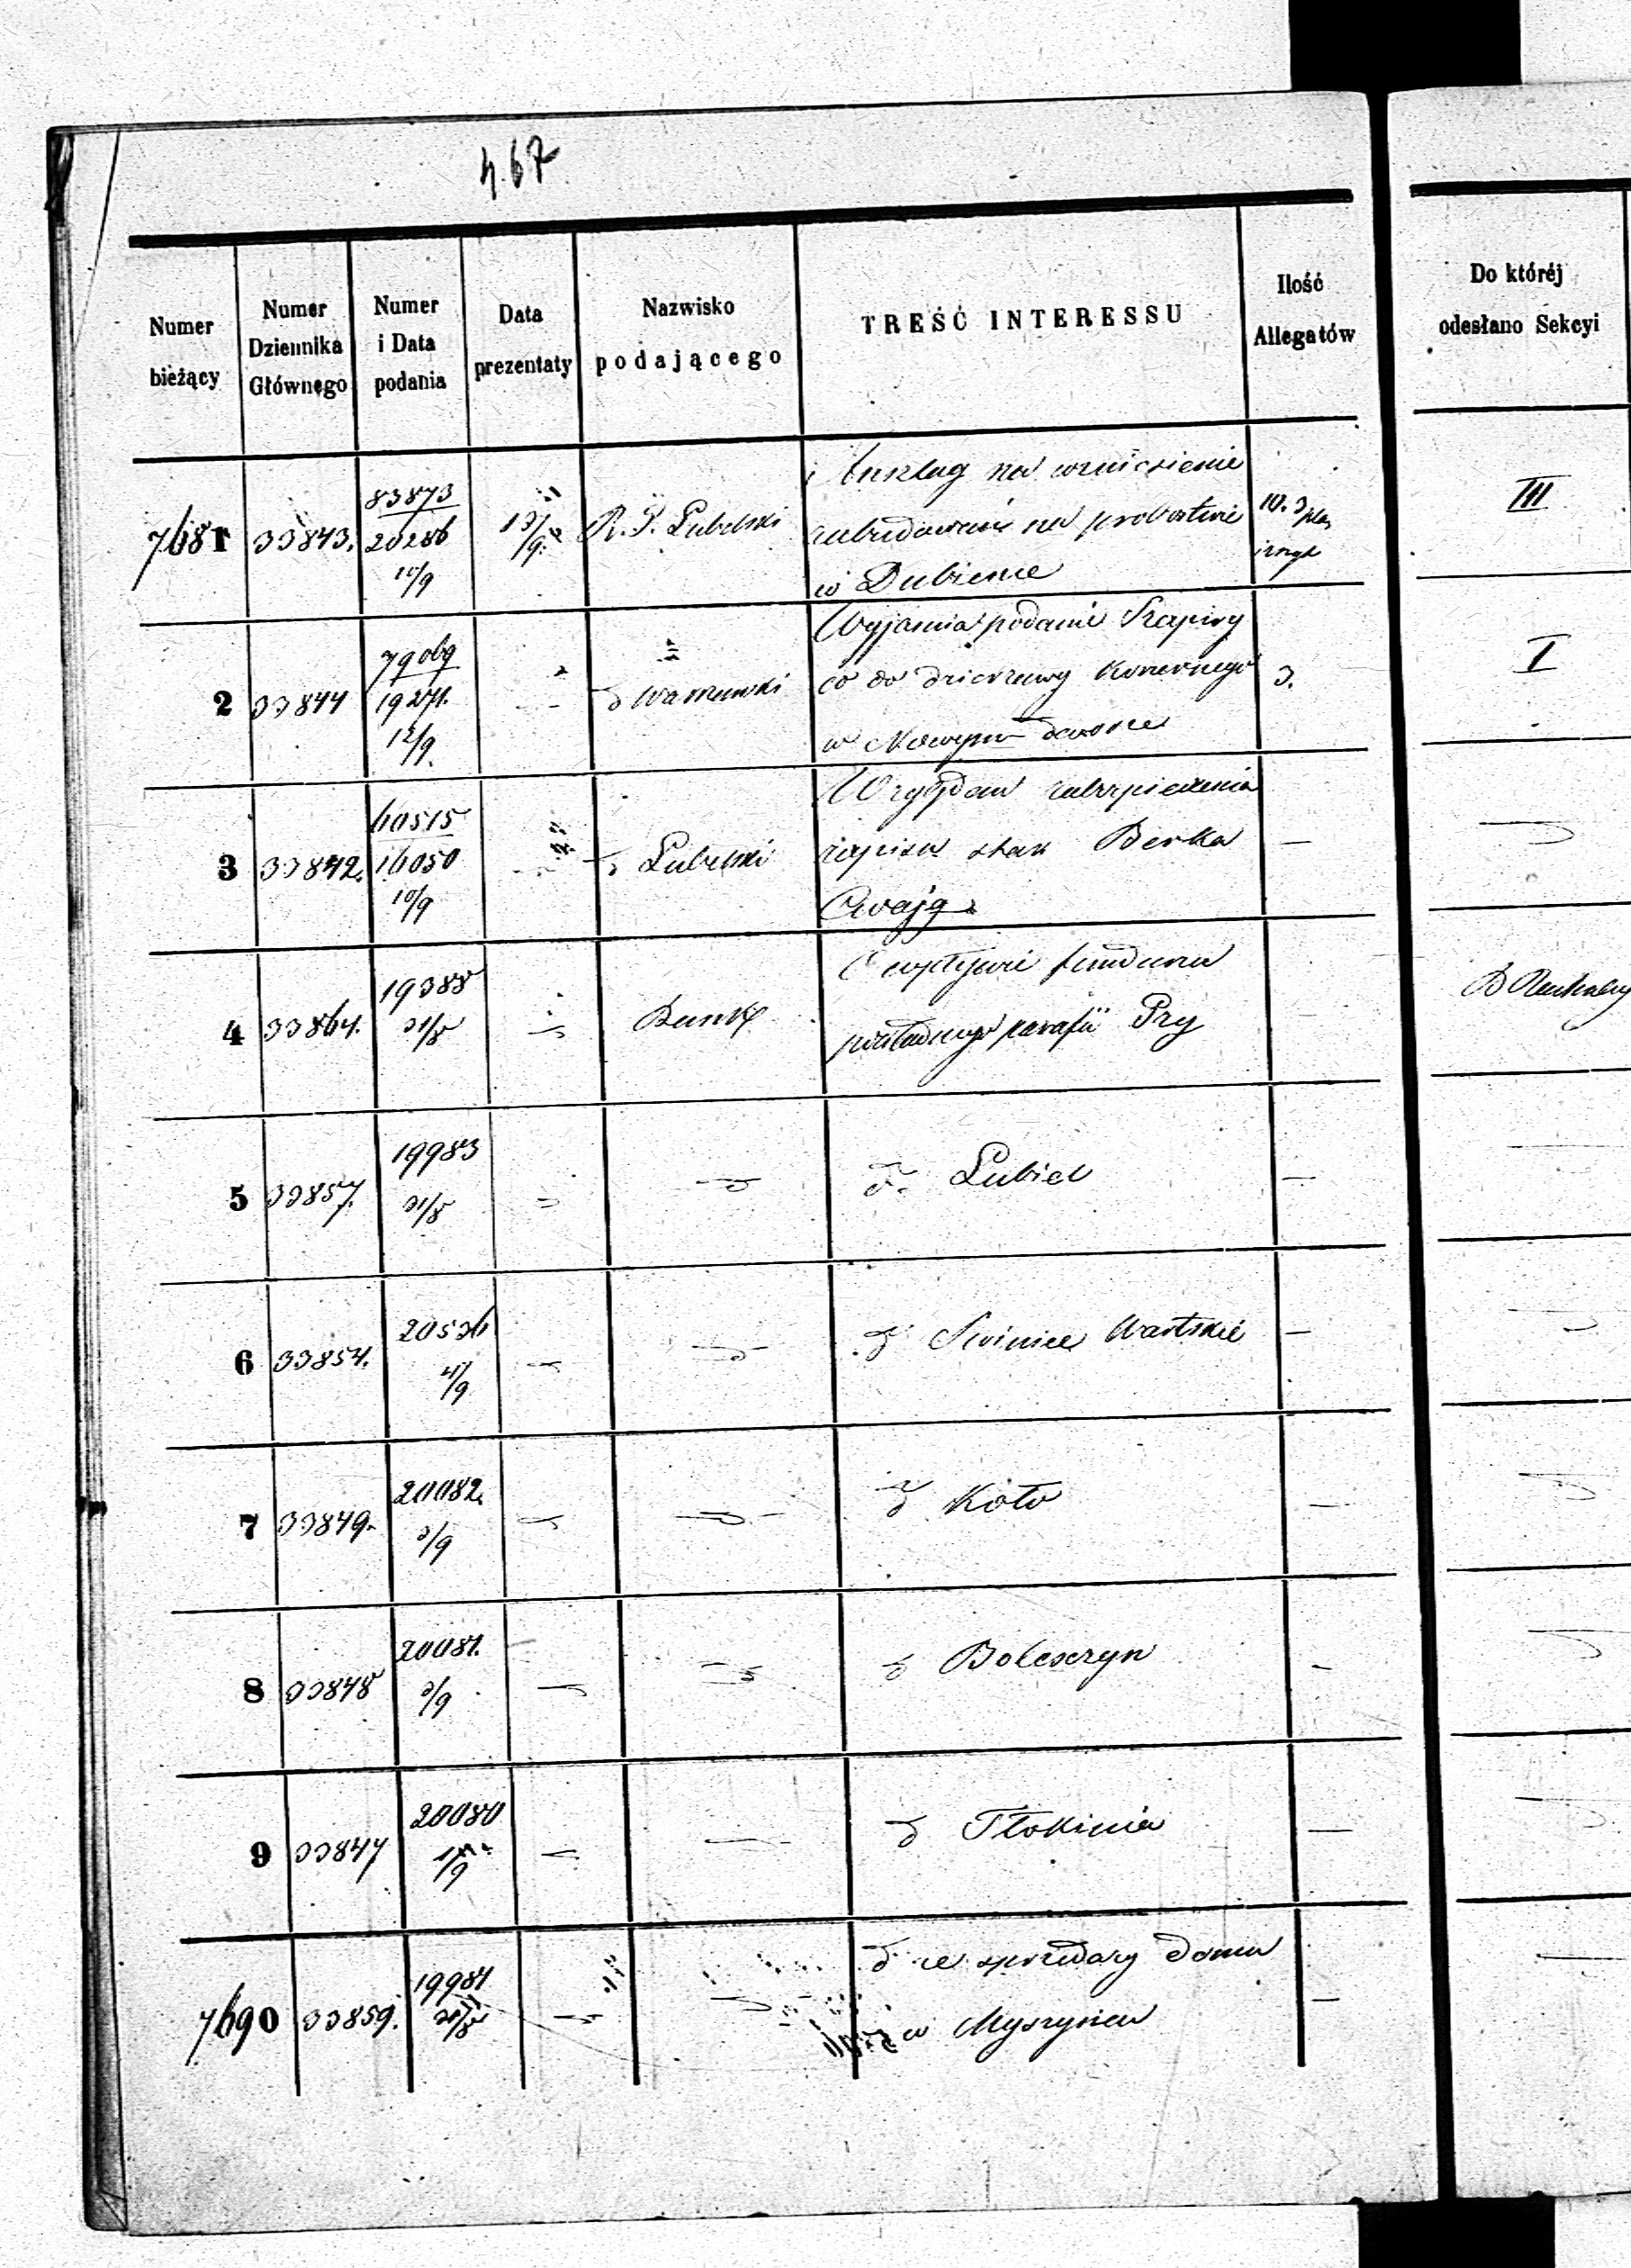 467
Numer bieżący
Numer Dziennika Głównego
Numer i Data podania
Data prezentaty
Nazwisko podającego
TREŚĆ INTERESSU
Ilość Allegatów
Do któréj odesłano Sekcyi
7681 33843. 83873 / 20286 10/9 13/9 R. G. Lubelski
Anszlag na wzniesienie
zabudowań na probostwie
w Dubience
10. 3
III
2 33844 79069 / 19271. 12/9. d Warszawski
Wyjaśnia podanie Szapiry
co do dzierżawy
w Nowym dworze
3.
I
3 33842. 60515 / 16050 10/9 d Lubelski
Względem zabezpieczenia
zapisu Berka
Cwajg
—
4 33864. 19388 31/8 Bank
O wpływie funduszu
parafii Pry
5 33857. 19983 31/8
d. Lubiel
—
6 33854. 20536 4/9
d Swinice Wartskie
—
7 33849. 20082. 3/9
d Koło
—
8 33848 20081. 3/9
d Boleszczyn
—
9 33847 20080 1/9
d Tłokinia
—
7690 33859. 19984 31/8
d ze sprzedaży domu
w Myszyńcu
—